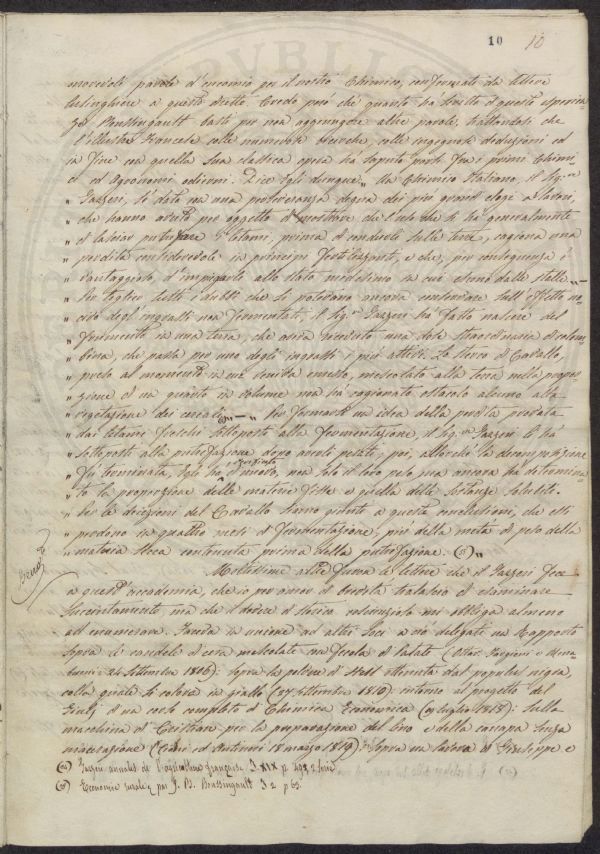 10 10
morevoli parole d'encomio per il nostro Chimico, confermate da lettere
lusinghiere a questi dirette. Credo però che quanto ha scritto a questo
Boussingault basti per non aggiungere altre parole, trattandosi che
l'illustre Francese colle numerose ricerche, colle ingegnose deduzioni ed
in fine con quella sua classica opera ha saputo porsi fra i primi Chimi-
ci ed Agronomi odierni. Dice Egli dunque „ Un Chimico Italiano, il Sig.re
„ Gazzeri, s'è dato con una perseveranza degna dei più grandi elogi a lavori,
„ che hanno avuto per oggetto di mostrare che l'uso che si ha generalmente
„ di lasciar putrefare i letami, prima di condurli sulle terre, cagiona una
„ perdita considerevole in principj fertilizzanti, e che, per conseguenza è
„ vantaggioso, d'impiegarli allo stato medesimo in cui escono dalle stalle. —
„ Per togliere tutti i dubbi che si potevano ancora conservare sull'effetto no-
„ civo degl'ingrassi non fermentati, il Sig.re Gazzeri ha fatto nascere del
„ frumento in una terra, che aveva ricevuto una dose straordinaria di colom-
„ bina, che passa per uno degli ingrassi i più attivi. Lo sterco di Cavallo,
„ preso al momento in cui veniva emesso, mescolato alla terra nella propor-
„ zione di un quarto in volume non ha cagionato ostacolo alcuno alla
„ vegetazione dei cereali. — „ Per formarsi un'idea della perdita provata
„ dai letami freschi sottoposti alla fermentazione, il Sig.re Gazzeri li ha
„ sottoposti alla putrefazione dopo averli pesati; poi, allorchè la decomposizione
„ fu terminata, Egli ha di nuovo, non solo il loro peso ma ancora ha determina-
„ to la proporzione delle materie fisse e quella delle sostanze solubili.
„ Per le deiezioni del Cavallo siamo giunti a questa conclusione, che esse
„ perdono in quattro mesi di fermentazione, più della metà di peso della
„ materia secca contenuta prima della putrefazione. „
Moltissime altre furono le letture che il Gazzeri fece
a quest'accademia, che io per amor di brevità tralascio di esaminare
succintamente ma che il dovere di storico mi obbliga almeno
ad enumerare. Lavoro in unione ad altri Soci a ciò delegati un Rapporto
sopra le candele di cera mescolata con fecola di patate (Ottav. Targioni e
24 Settembre 1806): sopra la polvere di ottenuta dal populus nigra,
colla quale si colora in giallo (27 Settembre 1810): intorno al progetto del
di un corso completo di Chimica Economica (9 luglio 1818): sulla
macchina di Cristian per la preparazione del lino e della canapa senza
macerazione ( ed Antinori 18 marzo 1819): Sopra un lavoro di Giuseppe e
Gazzeri annales de l'agriculture française T. XIX p. 2 Serie
Economie rurale par J. B. Boussingault T. 2 p 65.